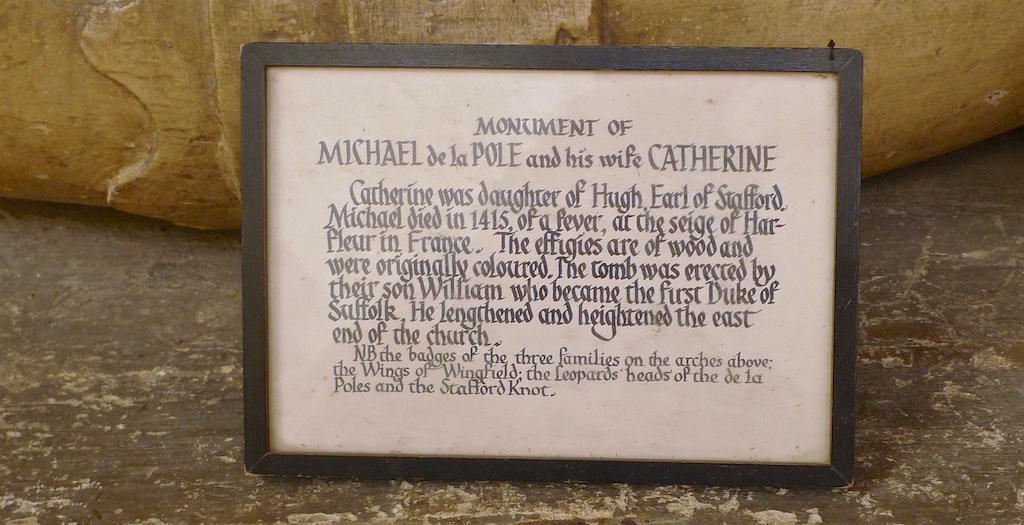 MONUMENT OF
MICHAEL de la POLE and his wife CATHERINE
Catherine was daughter of Hugh, Earl of Stafford.
Michael died in 1415, of a fever, at the seige of Har-
fleur in France. The effigies are of wood and
were originally coloured. The tomb was erected by
their son William who became the first Duke of
Suffolk. He lengthened and heightened the east
end of the church.
NB the badges of the three families on the arches above;
the Wings of Wingfield; the Leopards' heads of the de la
Poles and the Stafford Knot.